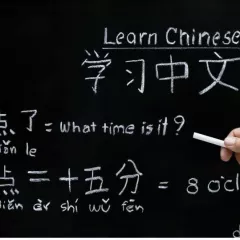 Learn Chinese
学习中文
点了 = what time is it?
iǎn le
点二十五分 = 8 o'cl
diǎn èr shí wǔ fēn